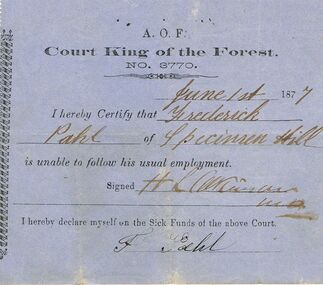 A. O. F.
Court King of the Forest.
NO. 3770.
June 1st 1877
I hereby Certify that Frederick
Pahl of Specimen Hill
is unable to follow his usual employment.
Signed H L Atkinson
I hereby declare myself on the Sick Funds of the above Court.
F Pahl